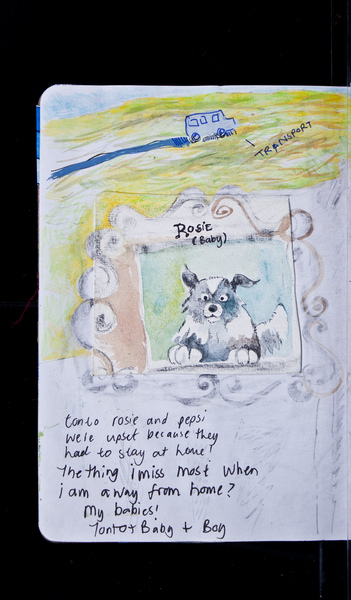 TRANSPORT
ROSIE
(Baby)
tonto rosie and pepsi
were upset because they
had to stay at home!
The thing i miss most when
i am away from home?
My babies!
Tonto + Baby + Boy